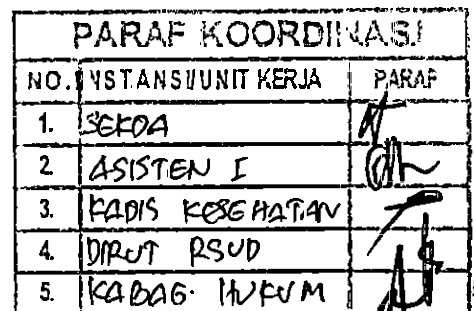 PARAF KOORDINASI
NO. INSTANSI/UNIT KERJA PARAF
1. SEKDA
2 ASISTEN I
3. KADIS KESEHATAN
4. DIRUT RSUD
5. KABAG. HUKUM